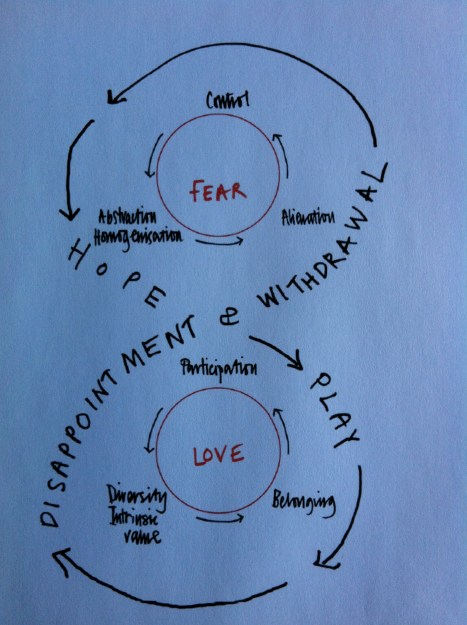 Control
FEAR
Abstraction
Homogenisation
Alienation
HOPE
DISAPPOINTMENT & WITHDRAWAL
PLAY
Participation
LOVE
Diversity
Intrinsic
value
Belonging